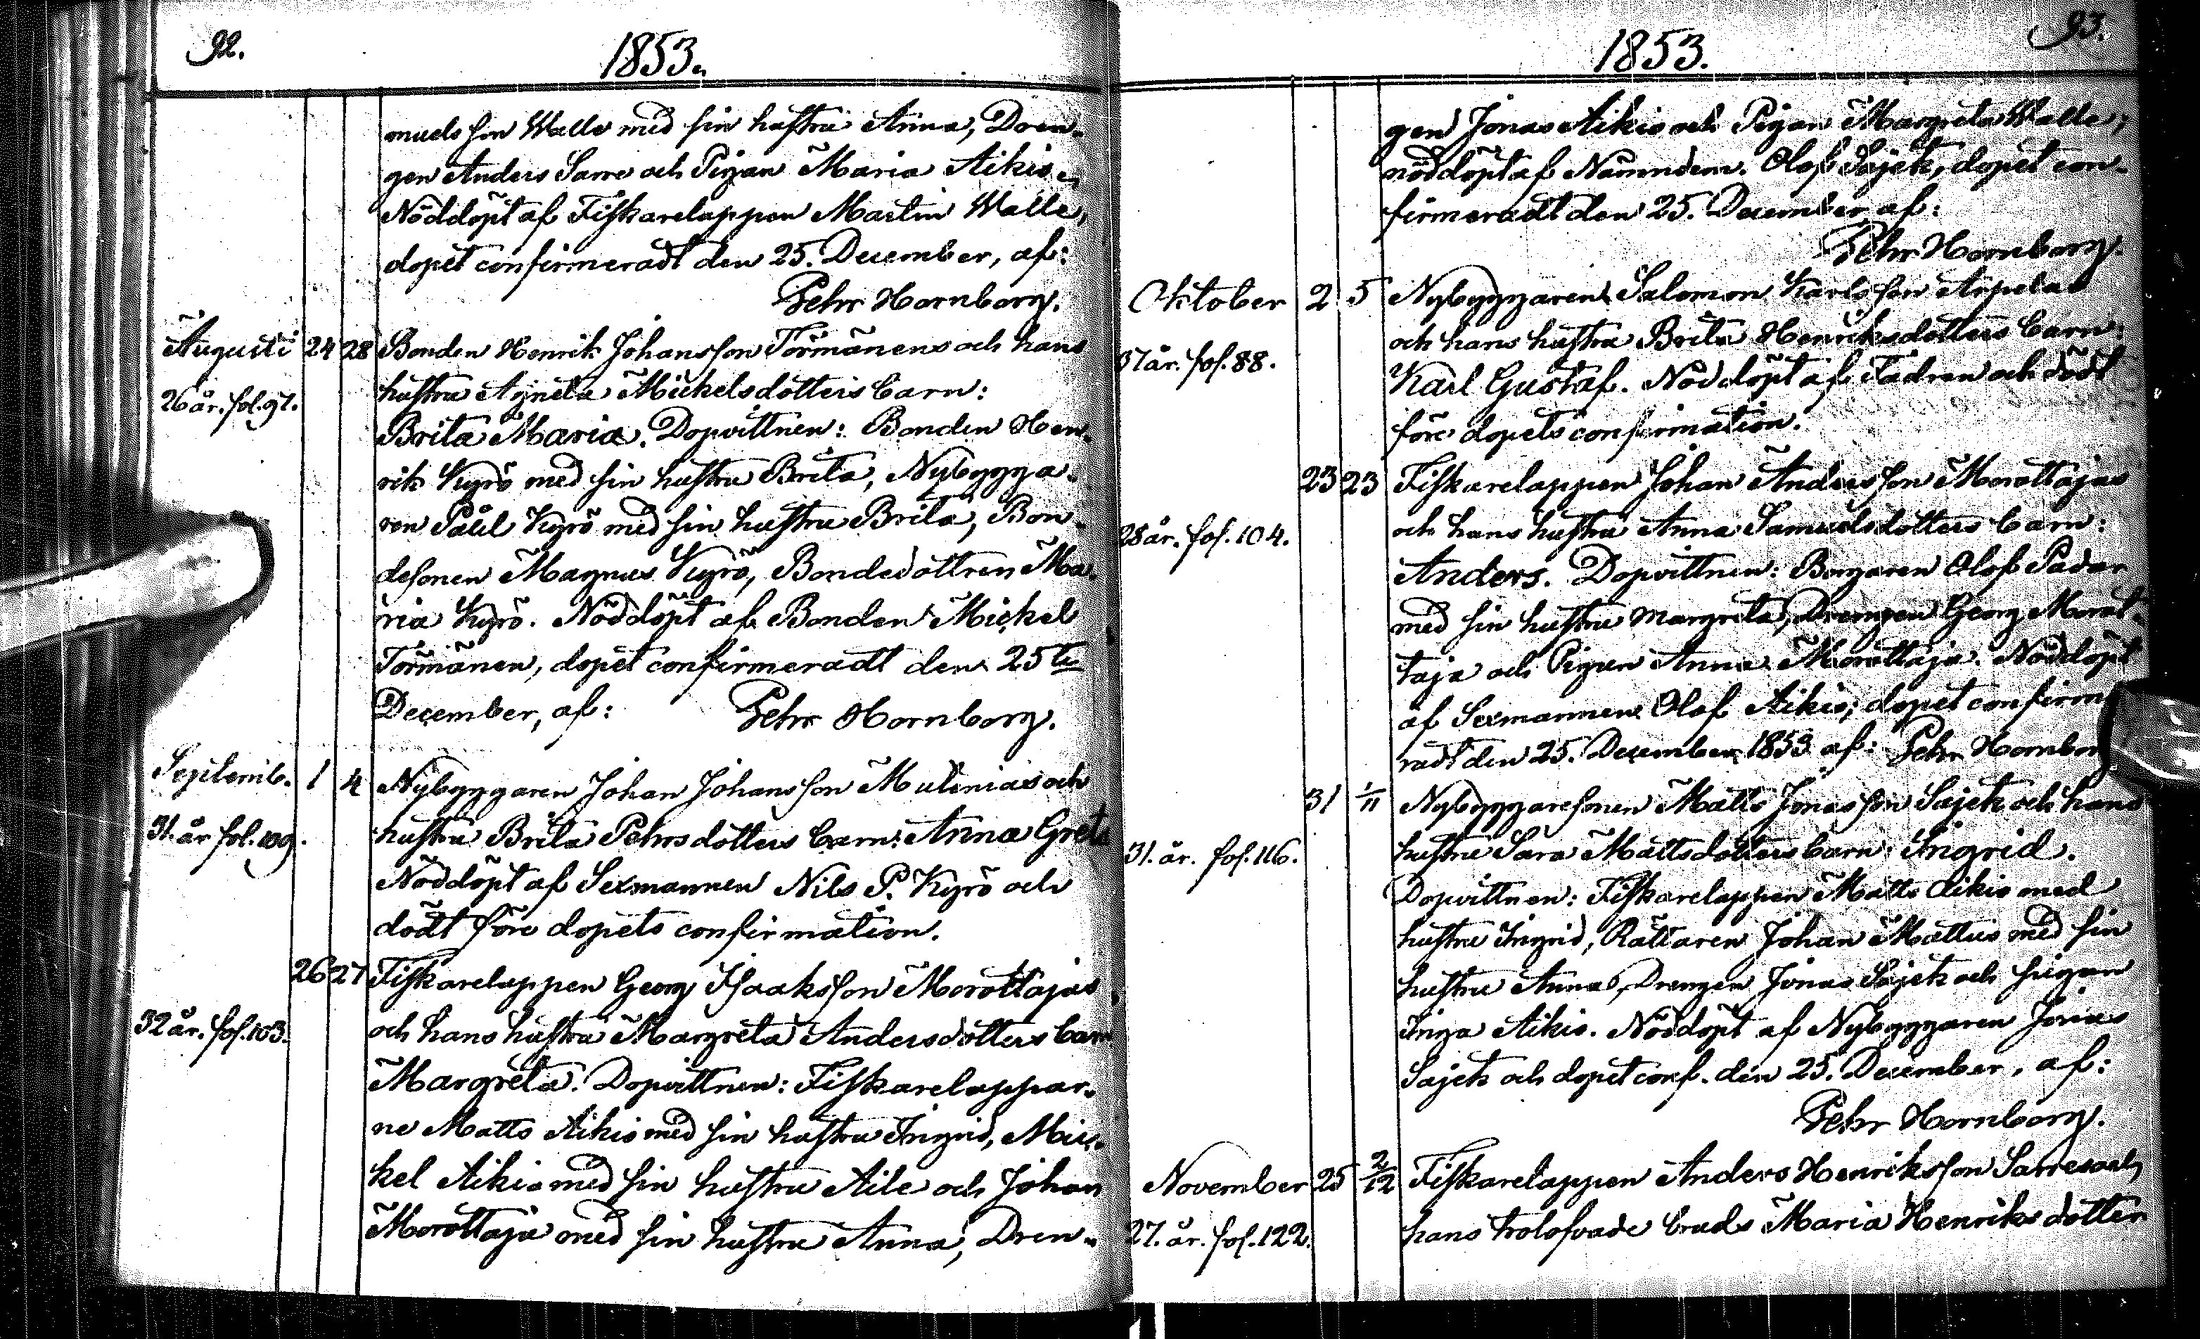 92.
1853.
muels son Walle med sin hustru Anna, Dren-
gen Anders Sarre och Pigan Maria Aikio,
Nöddöpt af Fiskarelappen Martin Walle,
dopet confirmeradt den 25. December, af:
Pehr Hornborg.
Augusti 24 28 Bonden Henrik Johansson Törmänens och hans
26 år. fol. 97. hustru Agneta Mickelsdotters barn:
Brita Maria. Dopvittnen: Bonden Hen-
rik Kyrö med sin hustru Brita, Nybygga-
ren Påul Kyrö med sin hustru Brita, Bon-
desonen Magnus Kyrö, Bondedottren Ma-
ria Kyrö. Nöddöpt af Bonden Mickel
Törmänen, dopet confirmeradt den 25te
December, af: Pehr Hornborg.
Septemb. 1 4 Nybyggaren Johan Johansson Mutenias och
31. år fol. 109. hustru Brita Pehrsdotters barn: Anna Greta
Nöddöpt af Sexmannen Nils P. Kyrö och
dödt före dopets confirmation.
26 27 Fiskarelappen Georg Isaksson Morottajas
32 år. fol. 103. och hans hustru Margreta Andersdotters barn
Margreta. Dopvittnen: Fiskarelappar-
ne Matts Aikio med sin hustru Ingrid, Mic-
kel Aikio med sin hustru Aile och Johan
Morottaja med sin hustru Anna, Dren-
93.
1853.
gen Jonas Aikio och Pigan Margreta Walle;
nöddöpt af Nämndem. Olof Sajek, dopet con-
firmeradt den 25. December af:
Pehr Hornborg.
Oktober 2 5 Nybyggaren Salomon Karlsson Arpelas
37 år. fol. 88. och hans hustru Brita Henriksdotters barn:
Karl Gustaf. Nöddöpt af Fadren och dödt
före dopets confirmation.
23 23 Fiskarelappen Johan Andersson Morottajas
28 år. fol. 104. och hans hustru Anna Samuelsdotters barn:
Anders. Dopvittnen: Borgaren Olof Padar
med sin hustru Margreta, Drengen Georg Morot-
taja och Pigan Anna Morottaja. Nöddöpt
af Sexmannen Olof Aikio; dopet confirme
radt den 25. December 1853 af: Pehr Hornbor
31 1/11 Nybyggaresonen Matts Jonasson Sajek och hans
31. år. fol. 116. hustru Sara Mattsdotters barn: Ingrid.
Dopvittnen: Fiskarelappen Matts Aikio med
hustru Ingrid, Rättaren Johan Mattus med sin
hustru Anna, Drengen Jonas Sajek och pigan
Inga Aikio. Nöddöpt af Nybyggaren Jonas
Sajek och dopet conf. den 25. December, af:
Pehr Hornborg.
November 25 2/12 Fiskarelappen Anders Henriksson Sarres och
27. år. fol. 122. hans trolofvade bruds Maria Henriks dotter